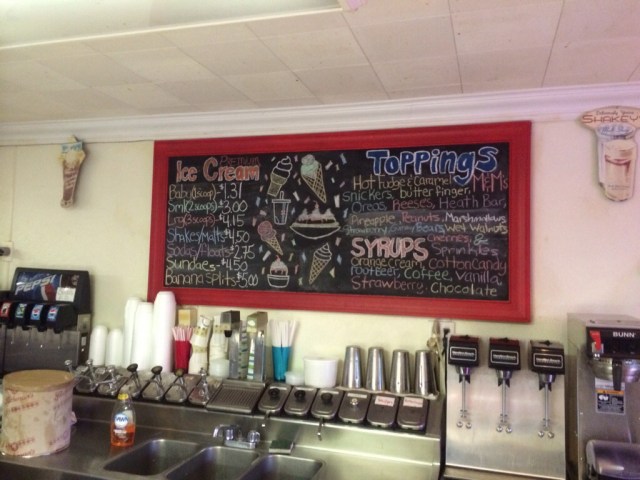 Premium
Ice Cream
Baby (1scoop) $1.31
Sml (2scoops) $3.00
Lrg (3scoops) $4.15
Shakes/Malts $4.50
Sodas/Floats $2.75
Sundaes $4.50
Banana Splits $5.00
Toppings
Hot Fudge & Caramel, M&M's
Snickers, butterfinger,
Oreos, Reeses, Heath Bar,
Pineapple, Peanuts, Marshmallows
Strawberry, Gummy Bears, Wet Walnuts
Cherries, &
Sprinkles
SYRUPS
Orange Cream, Cotton Candy
rootBeer, Coffee, Vanilla,
Strawberry, Chocolate
SHAKEY
pepsi
BUNN